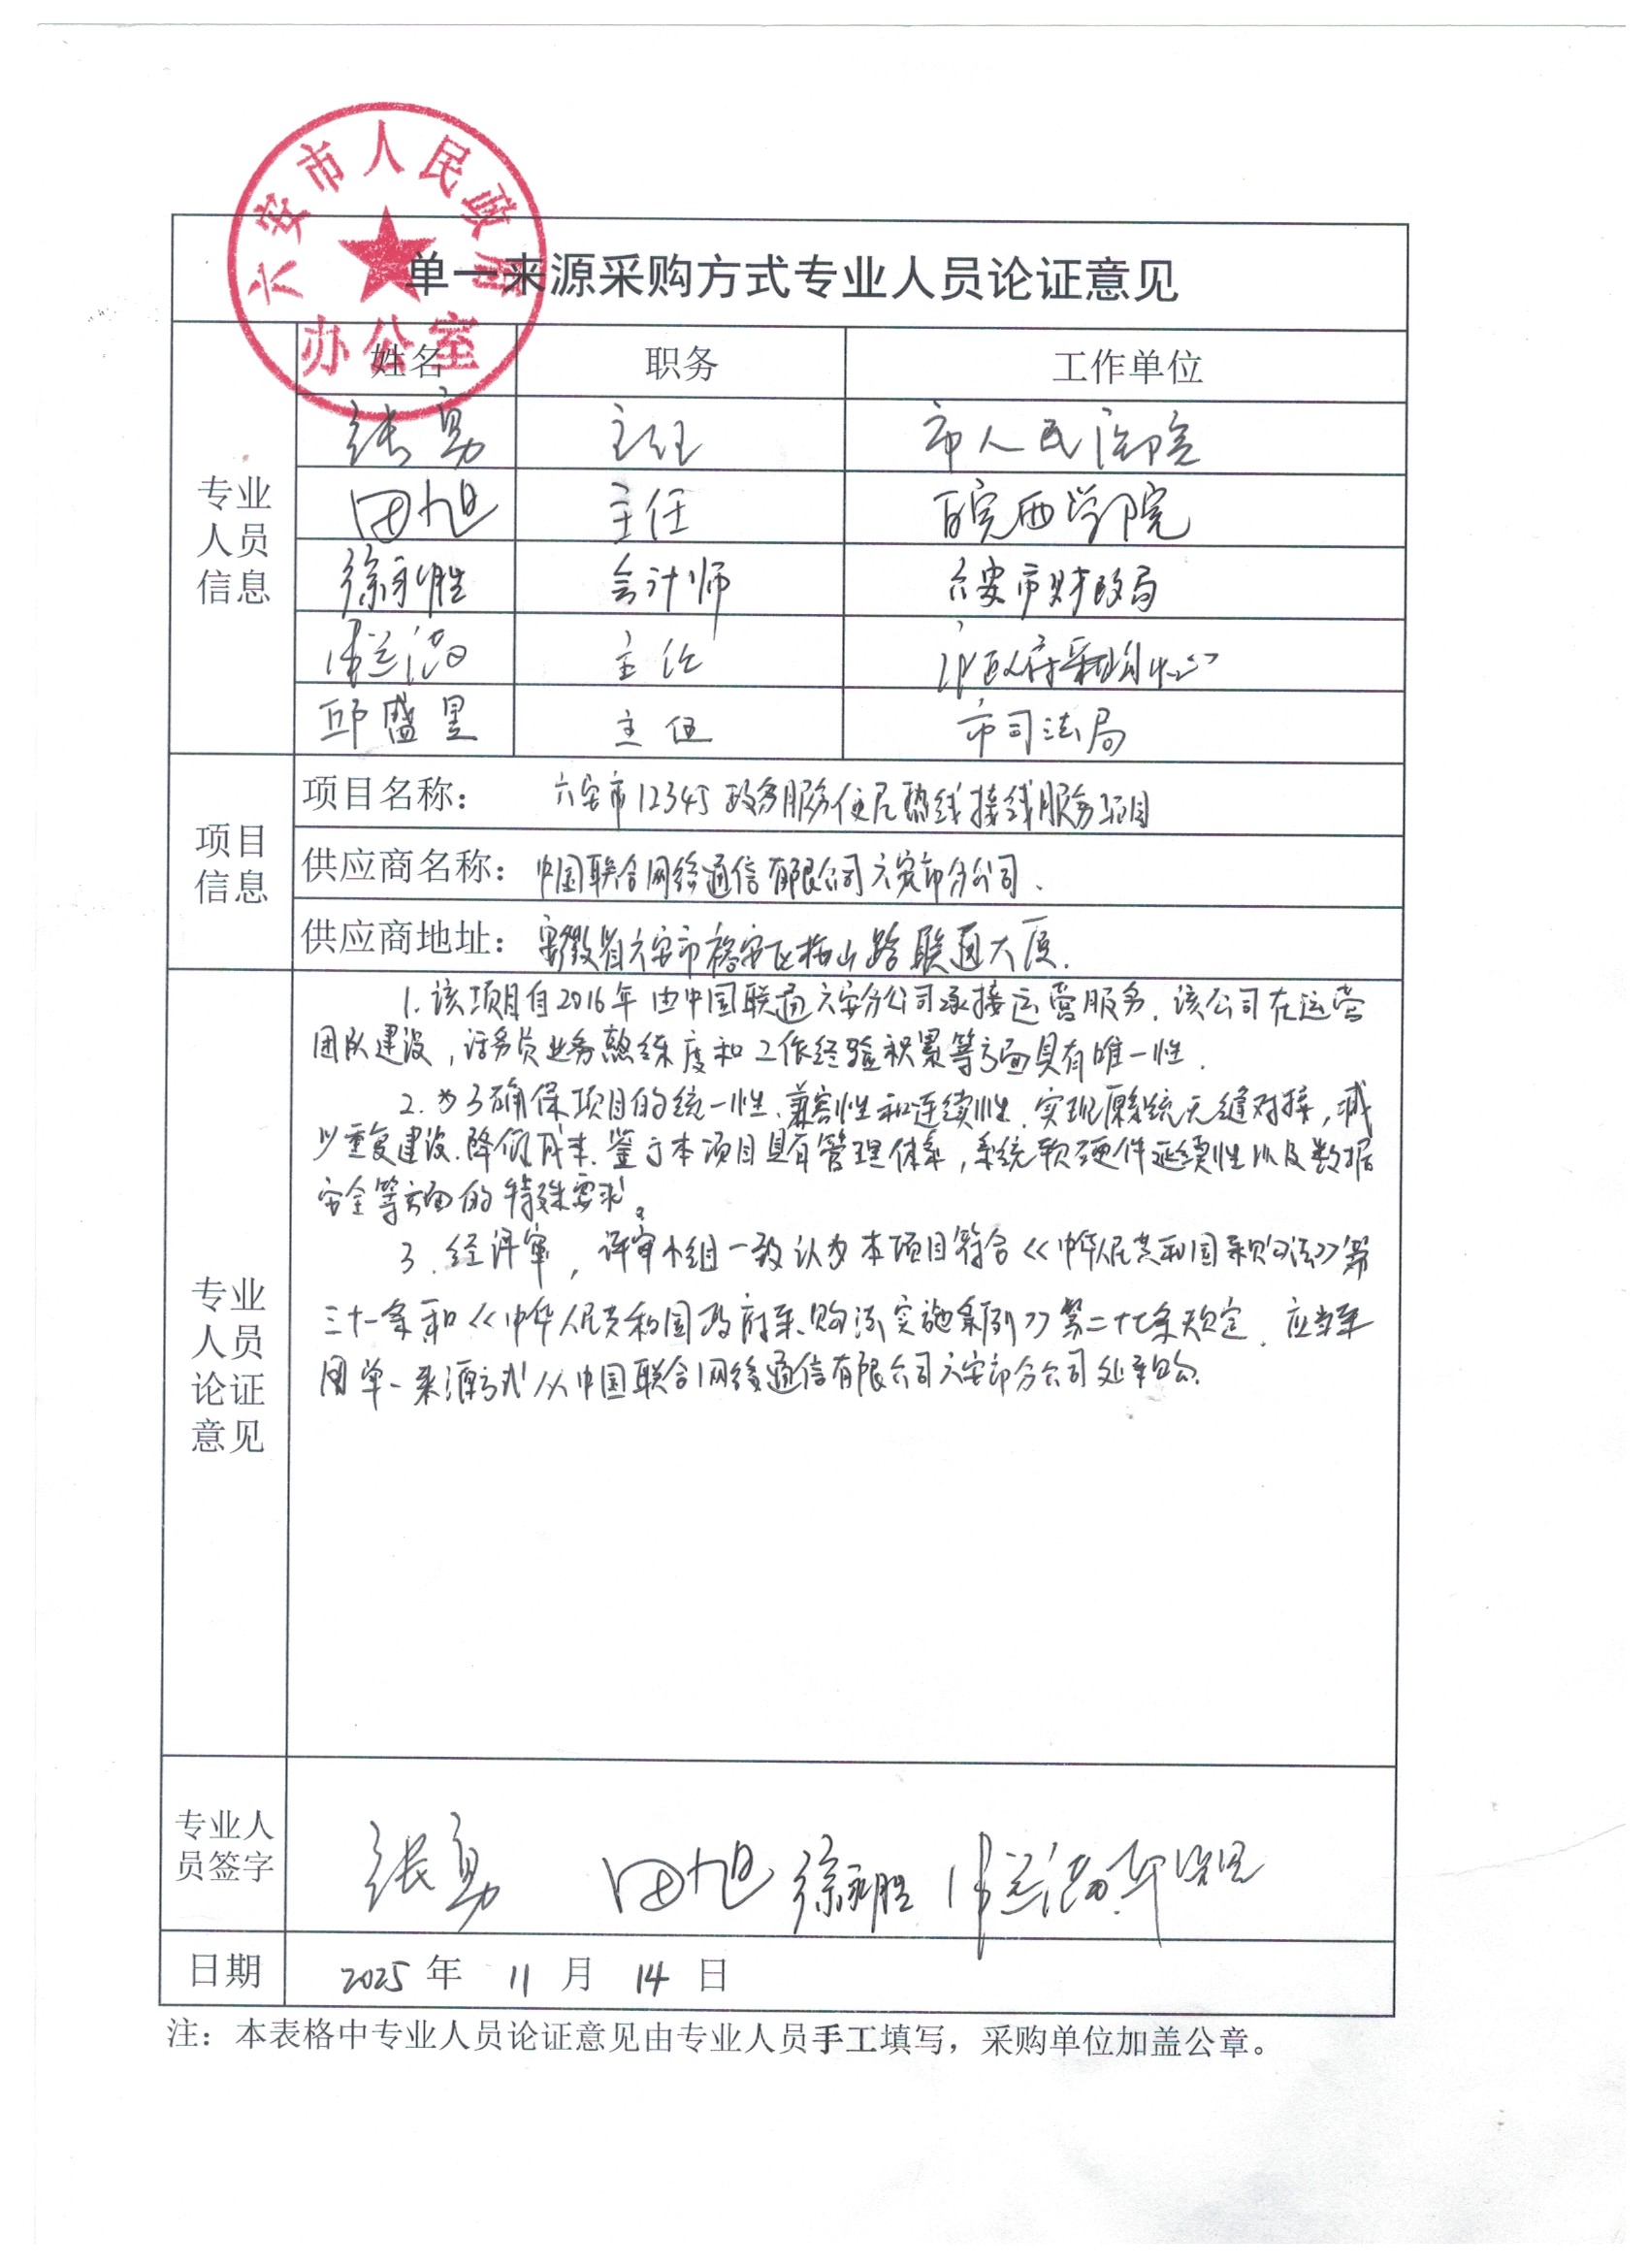 六安市人民政府
办公室
单一来源采购方式专业人员论证意见
专业人员信息
姓名 职务 工作单位
张勇 主任 市人民医院
田旭 主任 皖西学院
徐永胜 会计师 六安市财政局
主任 采购中心
邱盛 主任 市司法局
项目信息
项目名称： 六安市12345政务服务便民热线接线服务项目
供应商名称： 中国联合网络通信有限公司六安市分公司.
供应商地址： 安徽省六安市裕安区梅山路联通大厦.
专业人员论证意见
1.该项目自2016年由中国联通六安分公司承接运营服务.该公司在运营
团队建设,话务员业务熟练度和工作经验积累等方面具有唯一性.
2.为了确保项目的统一性、兼容性和连续性.实现原系统无缝对接,减
少重复建设.降低成本.鉴于本项目具有管理体系,系统软硬件延续性以及数据
安全等方面的特殊要求。
3.经评审,评审小组一致认为本项目符合《中华人民共和国采购法》第
三十一条和《中华人民共和国政府采购法实施条例》第二十七条规定.应当采
用单一来源方式从中国联合网络通信有限公司六安市分公司处采购.
专业人员签字
张勇 田旭 徐永胜
日期 2025年 11月 14日
注：本表格中专业人员论证意见由专业人员手工填写，采购单位加盖公章。